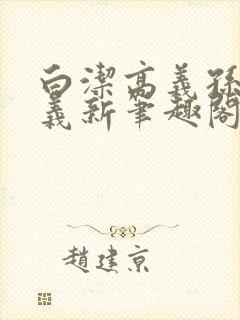 白潔高義孫
義新筆趣閣
趙建京